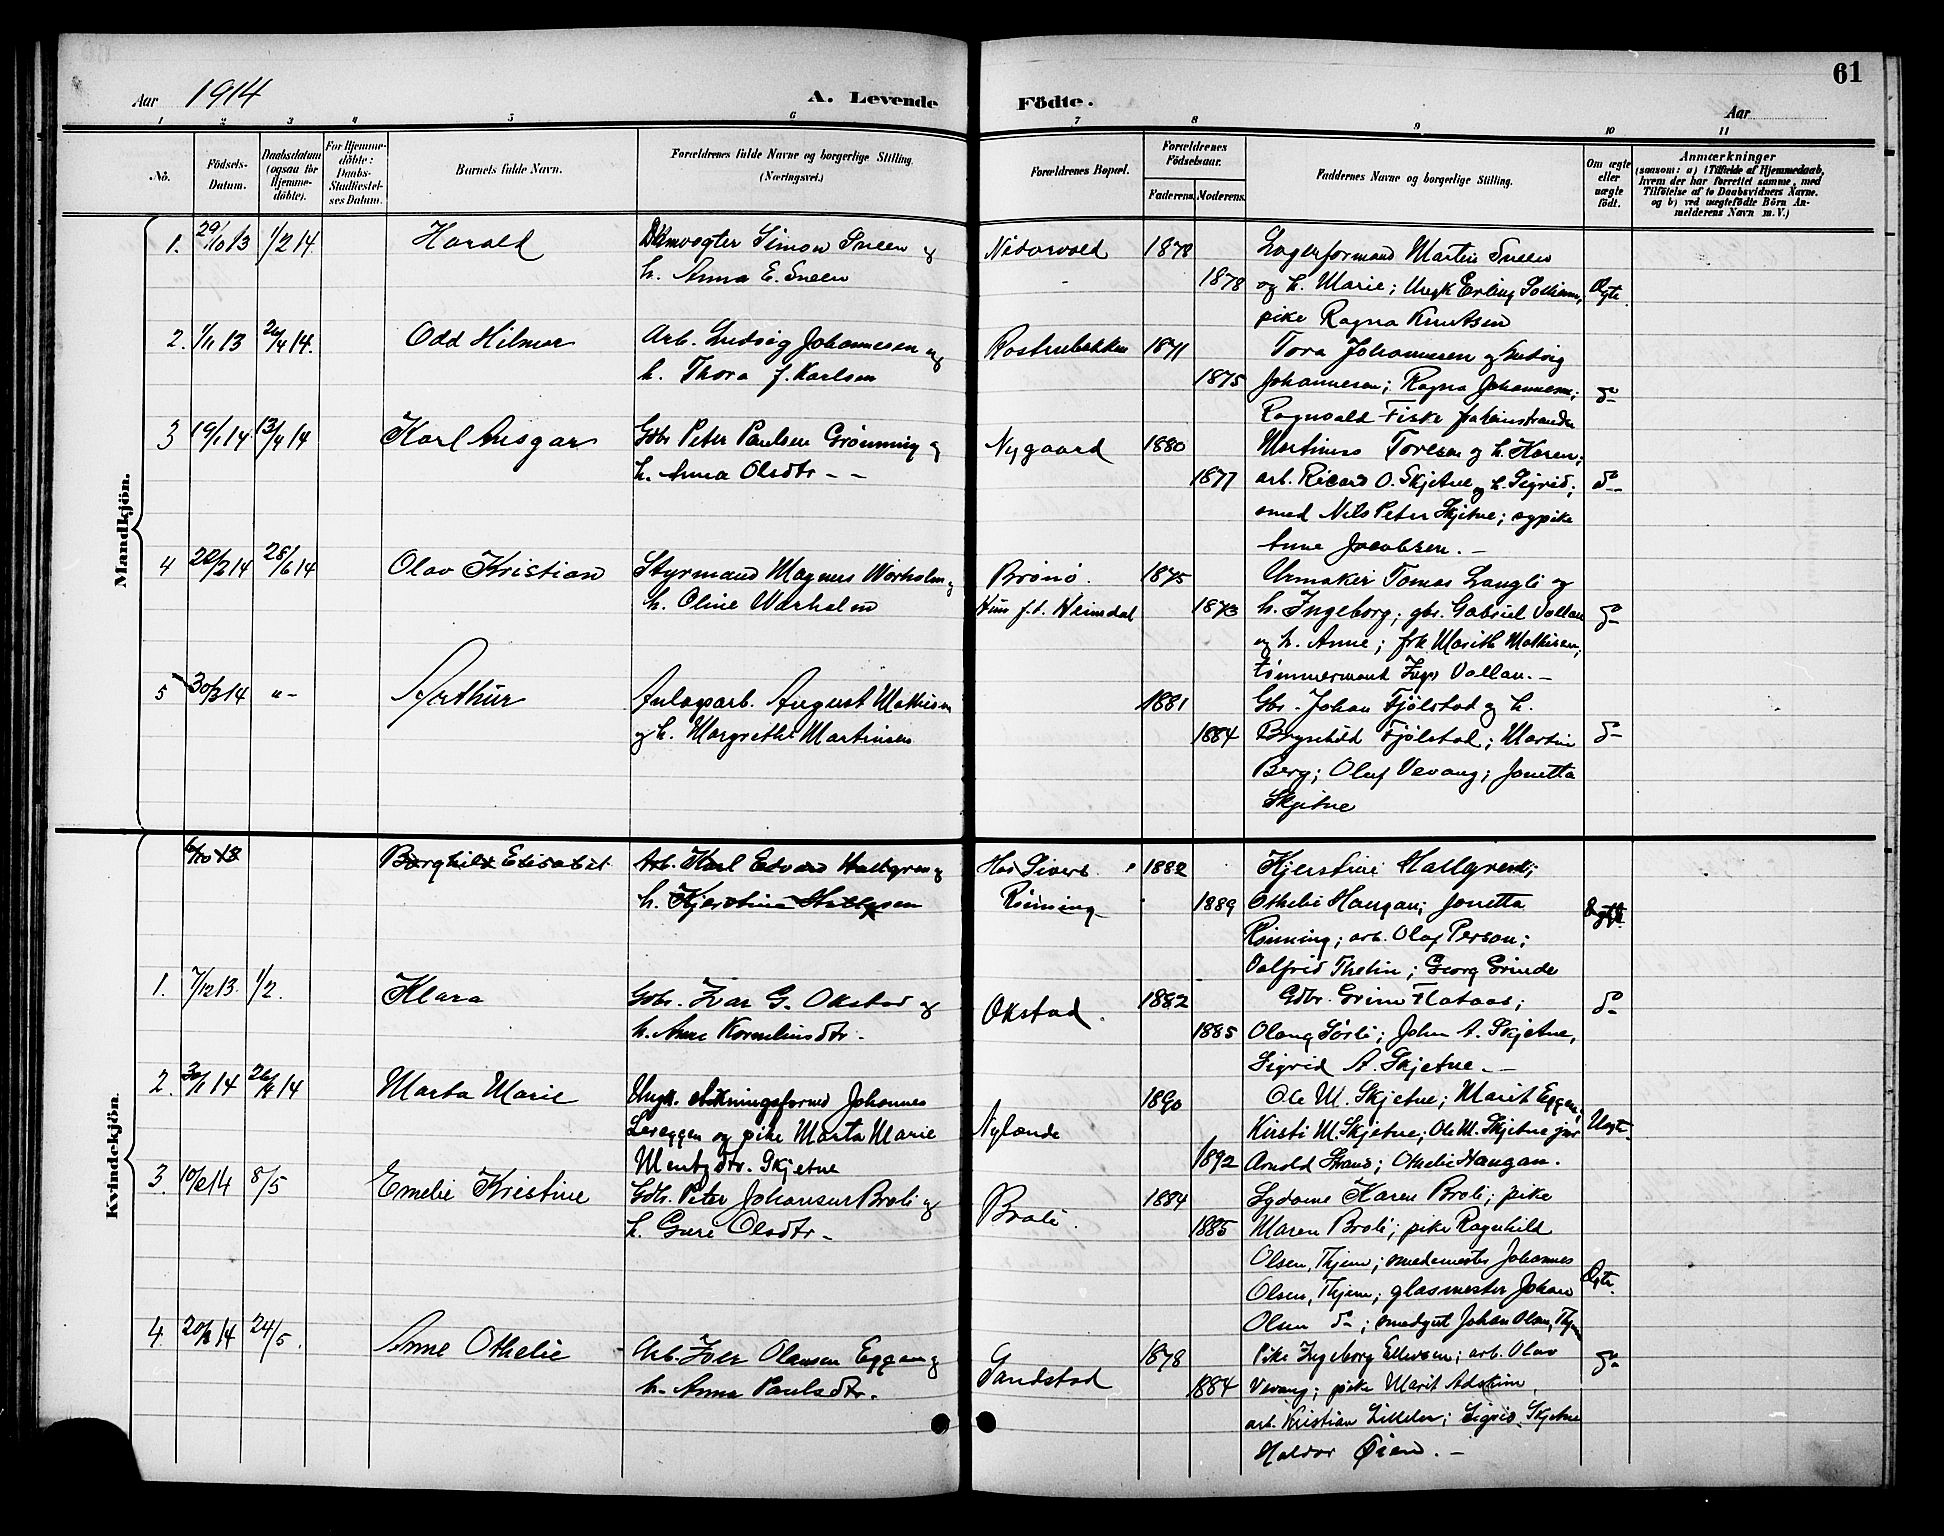 61
Aar 1914 A. Levende Födte. Aar
1 2 3 4 5 6 7 8 9 10 11
No. Födsels-Datum. Daabsdatum (ogsaa for Hjemme-döbte). For Hjemme-döbte: Daabs-Stadfæstel-ses Datum. Barnets fulde Navn. Forældrenes fulde Navne og borgerlige Stilling. (Næringsvei.) Forældrenes Bopæl. Forældrenes Födselsaar. Faderens Moderens. Faddernes Navne og borgerlige Stilling. Om ægte eller uægte födt. Anmærkninger (saasom: a) i Tilfælde af Hjemmedaab, hvem der har forrettet samme, med Tilföielse af to Daabsvidners Navne. og b) ved uægtefödte Börn An-melderens Navn m. V.)
Mandkjön.
1. 29/10 13 1/2 14. Harald Simon Sneen og 1878 Lagerformand Martin Sneen
h. Anna E. Sneen 1878 og h. Marie; Ungk Erling Solhem, Ægte.
pike Ragna Knutsen
2. 1/11 13 26/4 14. Odd Hilmar Arb. Ludvig Johannesen og Rostenbakken 1871 Tora Johannesen og Ludvig
h. Thora f. Karlsen 1875 Johannesen; Ragna Johannesen; do
Ragnvald Fiske
3 19/1 14 13/4 14 Karl Ansgar Gbr Peter Paulsen Grønning og Nygaard 1880 Martinus Toresen og h. Karen;
h. Anna Olsdtr - - 1877 arb. Ricard O. Skjetne og h. Sigrid; do
smed Nils Peter Skjetne; og pike
Anne Jacobsen. -
4 28/6 14 Olav Kristian Styrmand Magnus Warholm og Brønø. 1875 Urmaker Tomas Langli og
h. Oline Warholm Hun f.t. Heimdal 1873 h. Ingeborg; gbr. Gabriel Vollan do
og h. Anne; frk. Marith Mathisen;
tømmermand Vollan. -
5 30/3 14 "- Arthur Anlægsarb. August Mathisen 1881 Gbr. Johan Fjølstad og h.
og h. Margrethe Martinsen 1884 Brynhild Fjølstad; Martin do
Berg; Oluf Vevang; Jonetta
Skjetne
Kvindekjön.
6/10 13 Borghild Elisabet Arb. Karl Edvard Hallgren og Hos Sivert 1882 Kjerstine Hallgren;
h. Kjerstine Rønning 1889 Othelie Haugan; Jonetta Ægte
Rønning; arb. Olaf Person;
Valfrid Thelin; Georg Grinde
1. 7/12 13. 1/2. Klara Gdbr. Ivar G. Okstad og Okstad. 1882 Gdbr. Grim Flataas; do
h. Anne Korneliusdtr. 1885 Olaug Sørli; John A. Skjetne,
Sigrid A. Skjetne. -
2. 30/1 14 26/4 14 Marta Marie Ungk. Johannes 1890 Ole M. Skjetne; Marit Eggen;
Lereggen og pike Marta Marie Nylænde Kirsti M. Skjetne; Ole M. Skjetne jnr Uægte.
Skjetne 1892 Arnold Strand; Othelie Haugan.
3. 10/2 14 8/5 Emelie Kristine Gdbr. Peter Johansen Broli og Broli. 1884 Sydame Karen Broli; pike
h. Gure Olsdtr - 1885 Maren Broli; pike Ragnhild
Olsen, Thjem; smedemester Johannes
Olsen, Thjem; glasmester Johan Ægte.
Olsen do; Johan Olsen, Thjem
4. 24/5. Anne Othelie Arb. Iver Olausen Eggen og Sandstad 1878 Pike Ingeborg Ellevsen; arb. Olav do
h. Anna Paulsdtr. 1884 Vevang; pike Marit
arb. Kristian Sigrid Skjetne
Haldor Øien. -